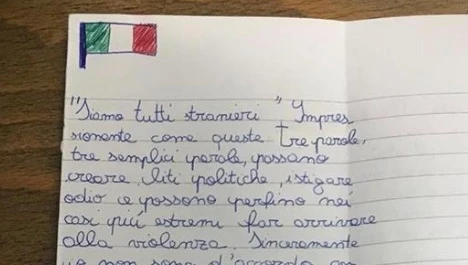 "Siamo tutti stranieri" Impres
sionante come queste tre parole,
tre semplici parole, possano
creare liti politiche, istigare
odio e possono perfino nei
casi più estremi far arrivare
alla violenza. Sinceramente
io non sono d'accordo con